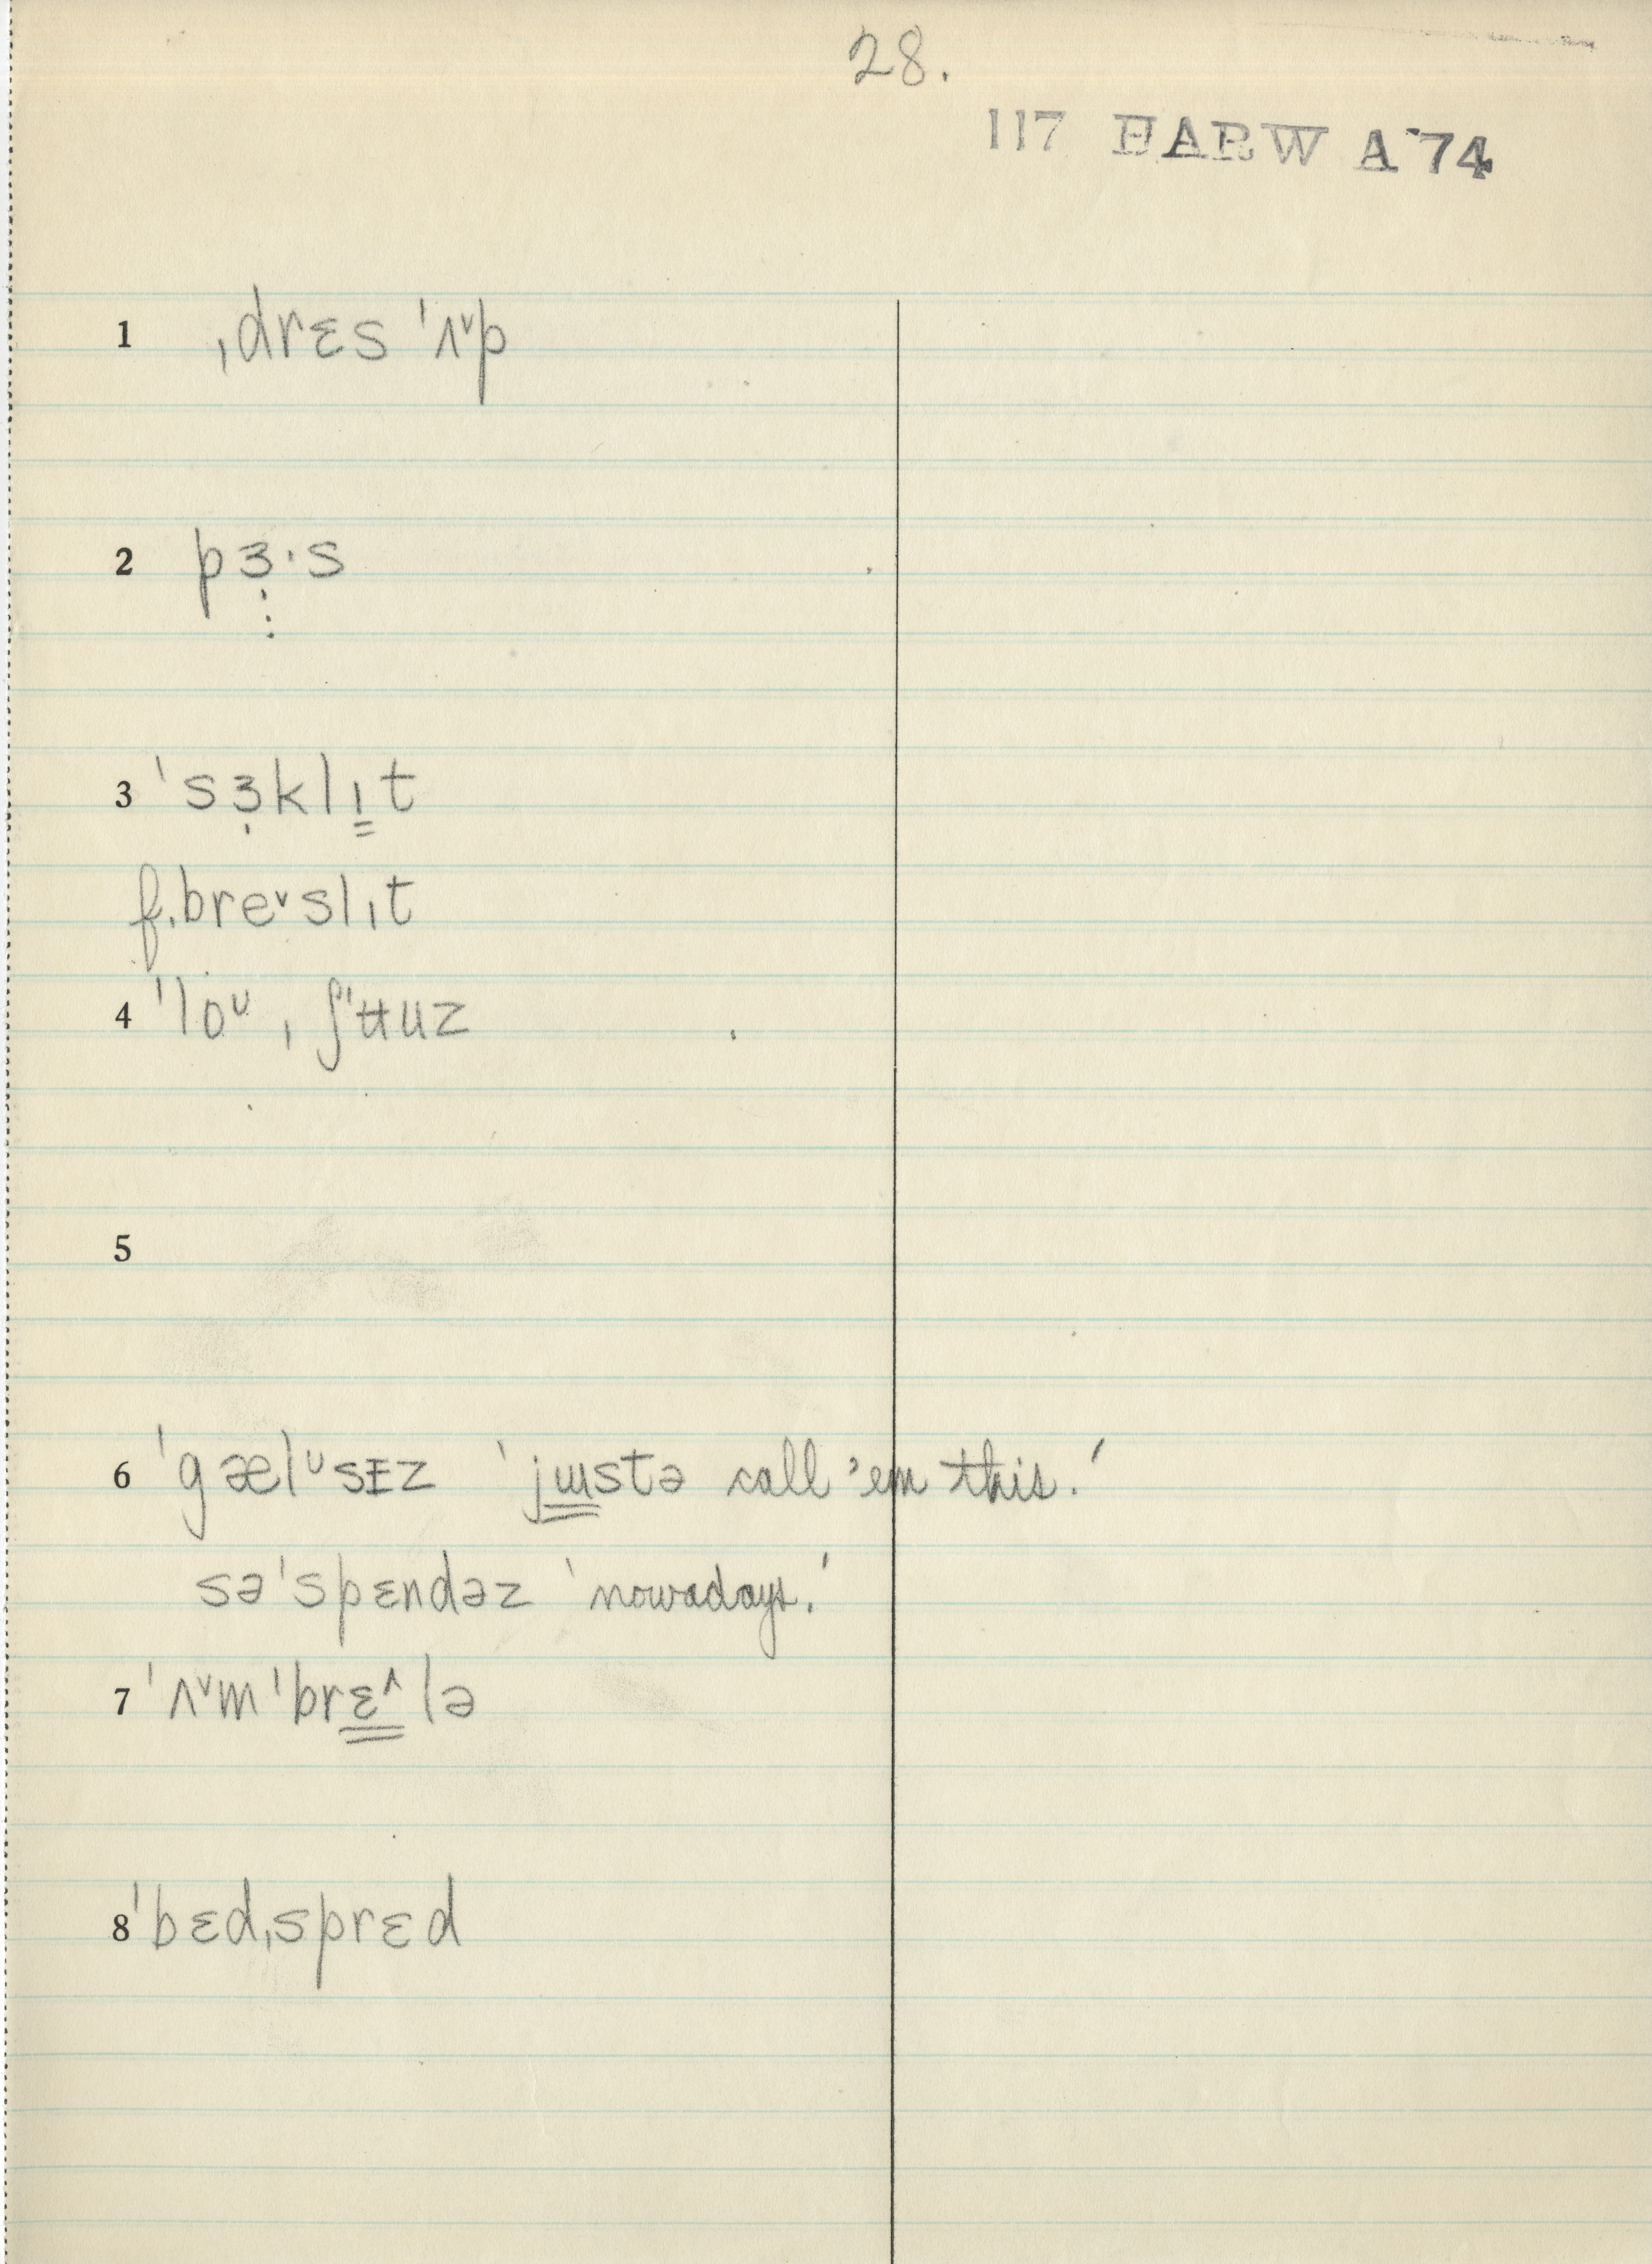 28.
117 HARW A 74
1 ˌdrɛs ˈʌ˅p
2 pɜ̣·s
3 ˈsɜ̣klı̳t
f. breᵛslıt
4 ˈloᵁ ˌʃʉuz
5
6 ˈgælᵁsɪz 'jɯstə call 'em this.'
səˈspɛndəz 'nowadays.'
7 ˈʌ˅mˈbrɛ̳˄lə
8 ˈbɛdˌsprɛd